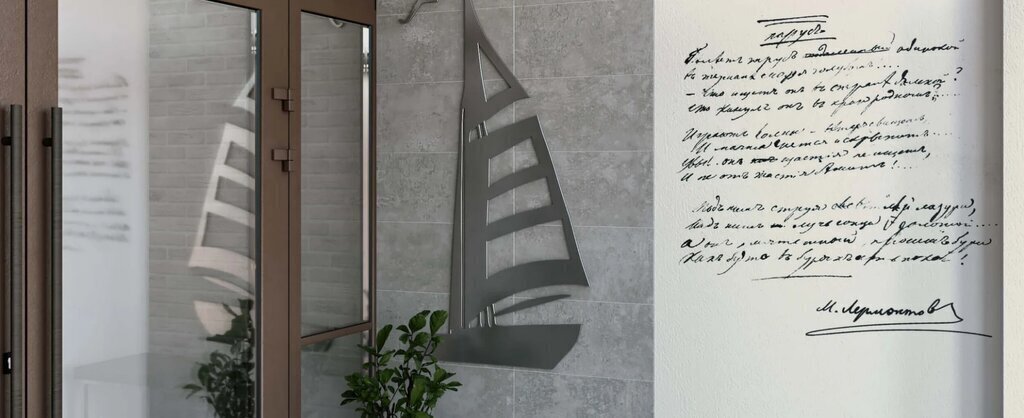 парусъ.
Белѣетъ парусъ одинокой
въ туманѣ моря голубомъ....
– Что ищетъ онъ въ странѣ далекой?
что кинулъ онъ въ краю родномъ?....
Играютъ волны – вѣтеръ свищетъ,
И мачта гнется и скрыпитъ....
Увы! онъ щастія не ищетъ,
И не отъ щастія бѣжитъ!..
Подъ нимъ струя свѣтлѣй лазури,
Надъ нимъ лучь солнца золотой....
а онъ, мятежный, проситъ бури
Какъ будто въ буряхъ есть покой!
М. Лермонтов